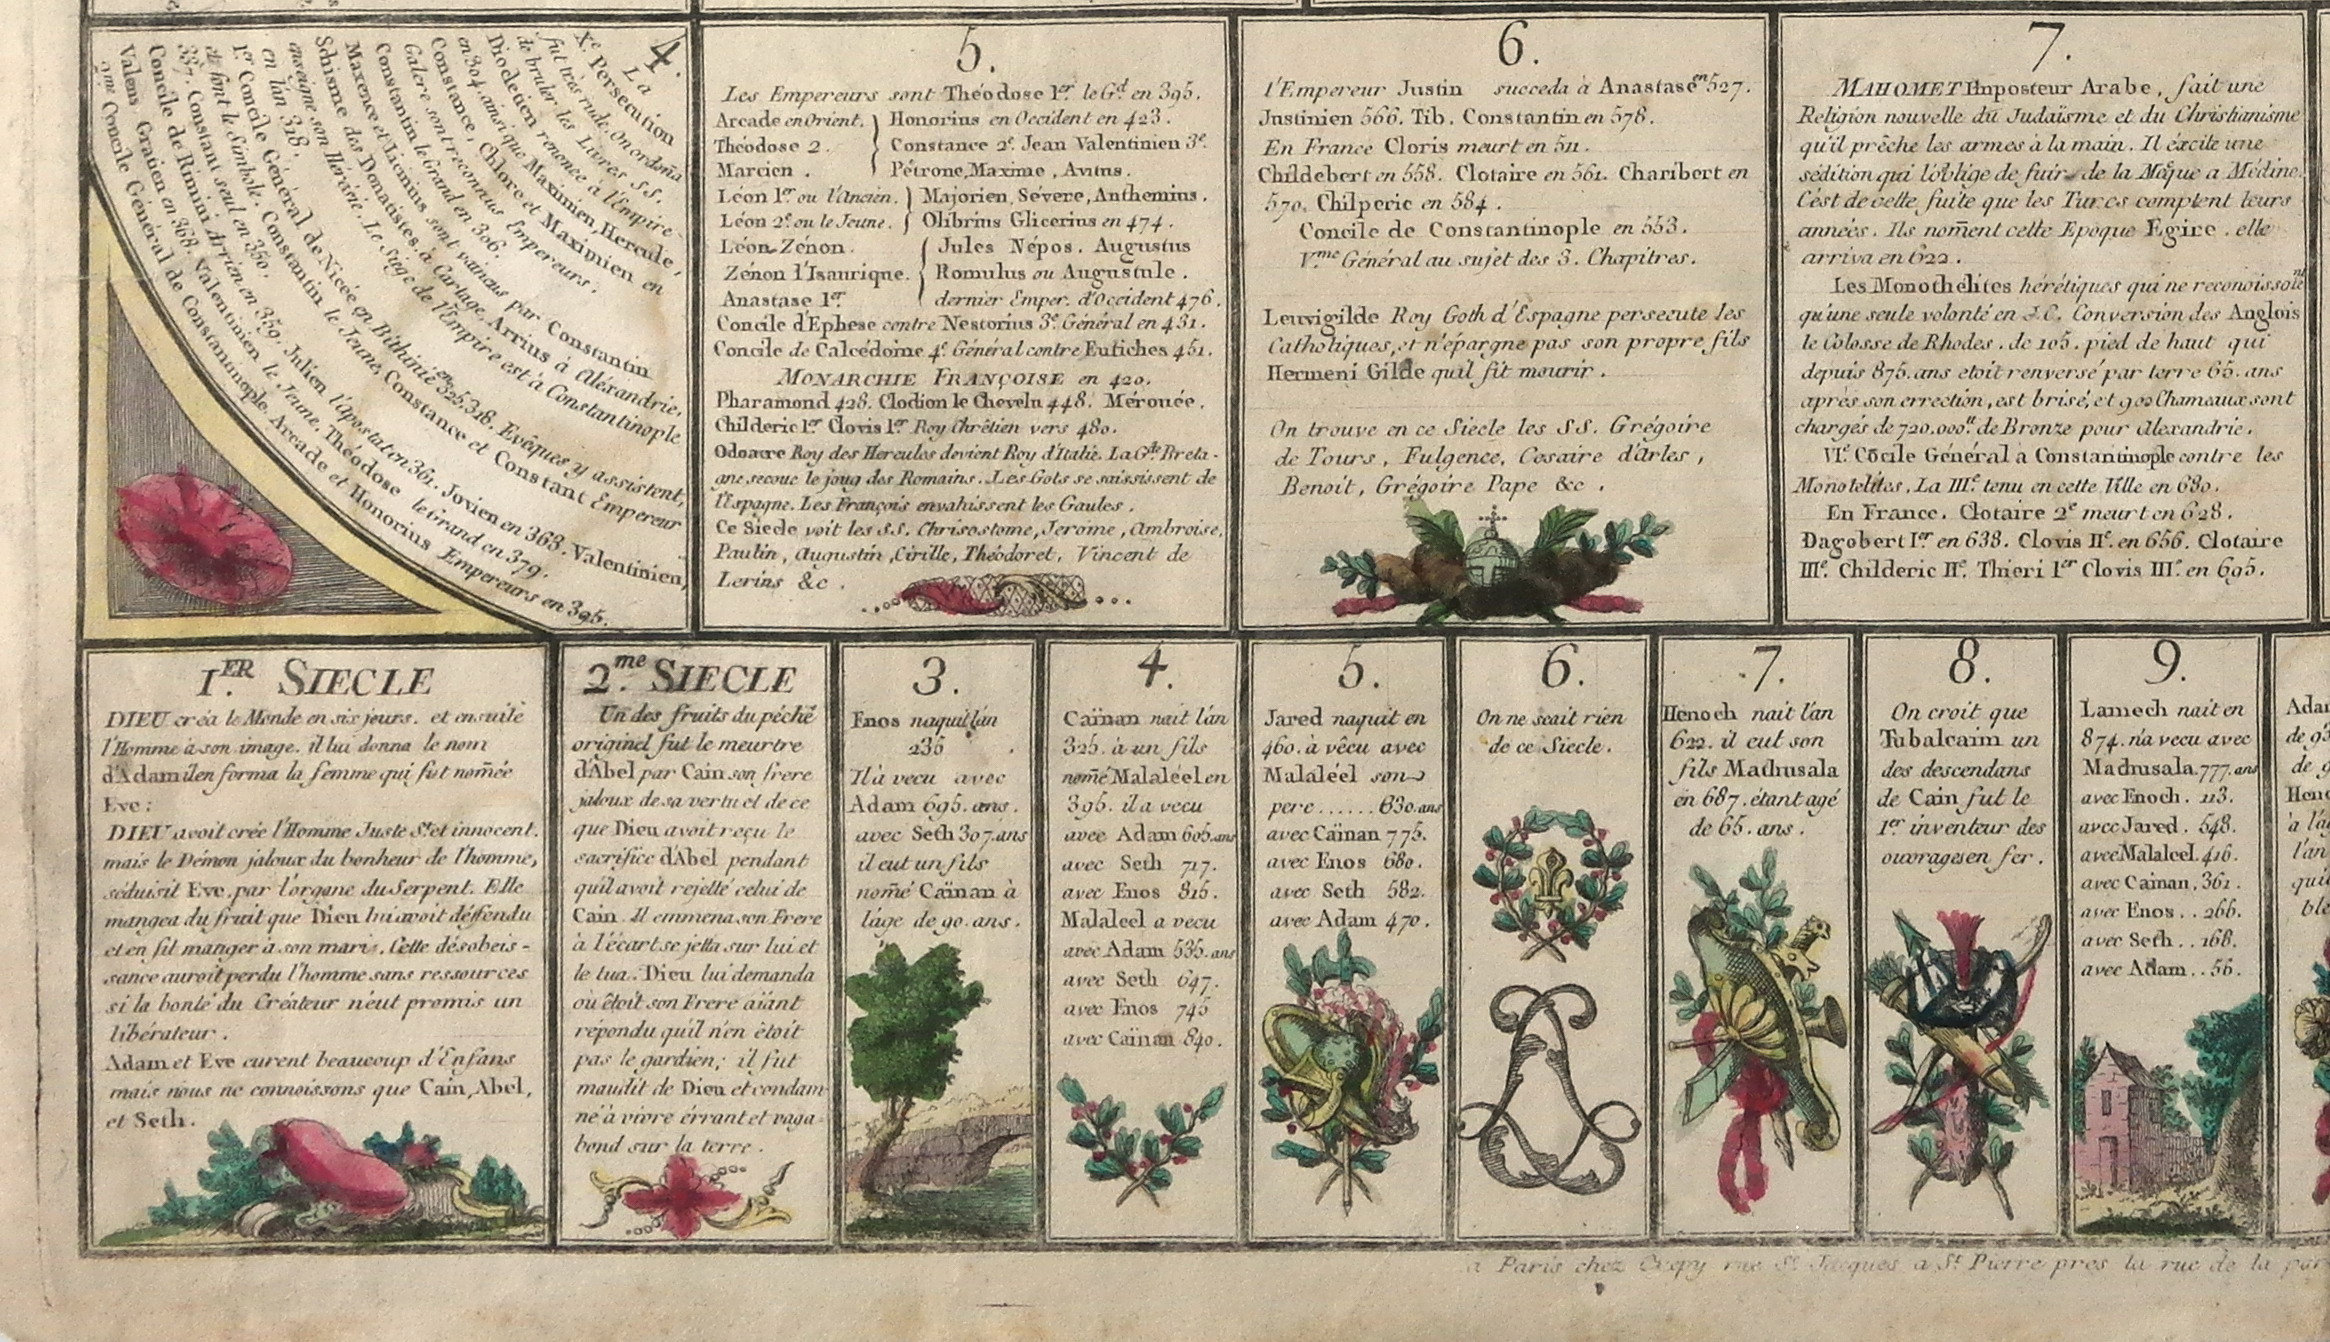 4.
La
X.e Persecution
fut très rude. On ordoña
de bruler les Livres SS.
Diocletien renonce à l'Empire
en 304. ainsi que Maximien, Hercule,
Constance, Chlore et Maximien en
Galere sont reconnus Empereurs.
Constantin le Grand en 306.
Maxence et Licinius sont vaincus par Constantin
Schisme des Donatistes, à Cartage, Arrius à Aléxandrie,
enseigne son Hérésie. Le Siege de l'Empire est à Constantinople
en l'an 318.
1.er Concile Général de Nicée en Bithinie en 325. 318. Evêques y assistent,
et font le Simbole. Constantin le Jeune, Constance et Constant Empereur
337. Constant seul en 350.
Concile de Rimini Arrien en 359. Julien l'apostat en 361. Jovien en 363. Valentinien,
Valens, Gratien en 368. Valentinien le Jeune, Théodose le Grand en 379.
2me Concile Général de Constantinople, Arcade et Honorius Empereurs en 395.
5.
Les Empereurs sont Théodose 1.er le G.d en 395.
Arcade en Orient. Honorius en Occident en 423.
Théodose 2. Constance 2.e Jean Valentinien 3.e
Marcien. Pétrone, Maxime, Avitus.
Léon 1.er ou l'Ancien. Majorien, Sévere, Anthemius.
Léon 2.e ou le Jeune. Olibrius Glicerius en 474.
Léon Zénon. Jules Népos. Augustus
Zénon l'Isaurique. Romulus ou Augustule.
Anastase 1.er dernier Emper. d'Occident 476.
Concile d'Ephese contre Nestorius 3.e Général en 431.
Concile de Calcédoine 4.e Général contre Eutiches 451.
MONARCHIE FRANÇOISE en 420.
Pharamond 428. Clodion le Chevelu 448. Mérouée.
Childeric 1.er Clovis 1.er Roy Chrêtien vers 480.
Odoacre Roy des Hercules devient Roy d'Italie. La G.de Breta-
gne secoue le joug des Romains. Les Gots se saisissent de
l'Espagne. Les François envahissent les Gaules.
Ce Siecle voit les S.S. Chrisostome, Jerome, Ambroise,
Paulin, Augustin, Cirille, Théodoret, Vincent de
Lerins &c.
6.
l'Empereur Justin succeda à Anastase en 527.
Justinien 566. Tib. Constantin en 578.
En France Cloris meurt en 511.
Childebert en 558. Clotaire en 561. Charibert en
570. Chilperic en 584.
Concile de Constantinople en 553.
V.me Général au sujet des 3. Chapitres.
Leuvigilde Roy Goth d'Espagne persecute les
Catholiques, et n'épargne pas son propre fils
Hermeni Gilde qu'il fit mourir.
On trouve en ce Siecle les S.S. Grégoire
de Tours, Fulgence, Cesaire d'Arles,
Benoit, Grégoire Pape &c.
7.
MAHOMET Imposteur Arabe, fait une
Religion nouvelle du Judaïsme et du Christianisme
qu'il prêche les armes à la main. Il éxcite une
sédition qui l'oblige de fuir de la Mêque a Médine.
C'est de cette fuite que les Turcs comptent leurs
années. Ils nom̃ent cette Epoque Egire. elle
arriva en 622.
Les Monothélites hérétiques qui ne reconoissoient
qu'une seule volonté en J.C. Conversion des Anglois
le Colosse de Rhodes. de 105. pied de haut qui
depuis 875. ans etoit renversé par terre 65. ans
après son errection, est brisé, et 900 Chameaux sont
chargés de 720.000.tt de Bronze pour Alexandrie.
VI.e Cõcile Général a Constantinople contre les
Monotelites, La III.e tenu en cette Ville en 680.
En France. Clotaire 2.e meurt en 628.
Dagobert I.er en 638. Clovis II.e en 656. Clotaire
III.e Childeric II.e Thieri 1.er Clovis III.e en 695.
1.ER SIECLE
DIEU créa le Monde en six jours. et ensuite
l'Homme à son image. il lui donna le nom
d'Adam il en forma la femme qui fut nom̃ée
Eve:
DIEU avoit crée l'Homme Juste S.t et innocent.
mais le Démon jaloux du bonheur de l'homme,
séduisit Eve par l'organe du Serpent. Elle
mangea du fruit que Dieu lui avoit déffendu
et en fit manger à son mari. Cette désobeis-
sance auroit perdu l'homme sans ressources
si la bonté du Créateur n'eut promis un
libérateur.
Adam et Eve eurent beaucoup d'Enfans
mais nous ne connoissons que Cain, Abel,
et Seth.
2.me SIECLE
Un des fruits du péché
originel fut le meurtre
d'Abel par Cain son frere
jaloux de sa vertu et de ce
que Dieu avoit reçu le
sacrifice d'Abel pendant
qu'il avoit rejetté celui de
Cain. Il emmena son Frere
à l'écart se jetta sur lui et
le tua. Dieu lui demanda
où étoit son Frere aïant
répondu qu'il n'en ètoit
pas le gardien; il fut
maudit de Dieu et condam
né à vivre érrant et vaga-
bond sur la terre.
3.
Enos naquit l'an
235
Il à vecu avec
Adam 695. ans.
avec Seth 307. ans
il eut un fils
nom̃é Caïnan à
l'àge de 90. ans.
4.
Caïnan nait l'an
325. à un fils
nom̃é Malaléel en
395. il a vecu
avec Adam 605. ans
avec Seth 717.
avec Enos 815.
Malaleel a vecu
avec Adam 535. ans
avec Seth 647.
avec Enos 745
avec Caïnan 840.
5.
Jared naquit en
460. à vêcu avec
Malaléel son
pere...... 830. ans
avec Caïnan 775.
avec Enos 680.
avec Seth 582.
avec Adam 470.
6.
On ne scait rien
de ce Siecle.
7.
Henoch nait l'an
622. il eut son
fils Mathusala
en 687. étant agé
de 65. ans.
8.
On croit que
Tubalcaim un
des descendans
de Cain fut le
1.er inventeur des
ouvrages en fer.
9.
Lamech nait en
874. n'a vecu avec
Mathusala. 777. ans
avec Enoch. 113.
avec Jared. 548.
avec Malaleel. 416.
avec Cainan. 361.
avec Enos.. 266.
avec Seth.. 168.
avec Adam.. 56.
Adam
de 93
de 9
Heno
à l'âg
l'an
qui
ble
à Paris chez Crepy rue S.t Jacques a S.t Pierre pres la rue de la par